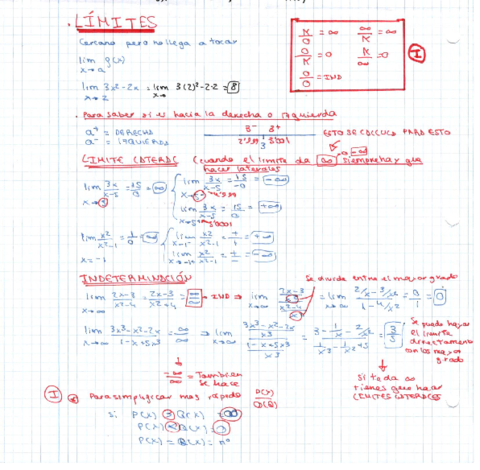 LÍMITES
Cercano pero no llega a tocar
lim f(x)
x→a
lim 3x²-2x = lim 3(2)²-2·2 = 8
x→2
K/0 = ∞   ∞/K = ∞
0/K = 0   K/∞ = 0
0/0 = IND
I
Para saber si es hacia la derecha o izquierda
a⁺ = DERECHA
a⁻ = IZQUIERDA
3⁻ 3⁺
2'999 3'001
3
ESTO SE CALCULA PARA ESTO
LIMITE LATERAL (cuando el limite da ∞ siempre hay que
hacer laterales
lim 3x/x-5 = 15/0 = ∞
x→5
lim 3x/x-5 = 15/-0 = -∞
x→5⁻ 4'999
lim 3x/x-5 = 15/0 = +∞
x→5⁺ 5'0001
lim x²/x²-1 = 1/0 = ∞
x→-1
lim x²/x²-1 = +/+ = +∞
x→-1⁻
lim x²/x²-1 = +/- = -∞
x→-1⁺
INDETERMINACIÓN
Se divide entre el mayor grado
lim 2x-3/x²-4 = 2x-3/x²+4 = ∞/∞ = IND ⇒ lim = lim 2/x-3/x²/1-4/x² = 0/1 = 0
x→∞
lim 3x³-x²-2x/1-x+5x³ = ∞/∞ ⇒ lim 3x³-x²-2x/x³ / 1-x+5x³/x³ = 3-1/x-2/x² / 1/x³-1/x²+5 = 3/5
x→∞
Se puede hacer
el limite
directamente
con los mayor
grado
-∞/∞ = Tambien
se hace
Si te da ∞
tienes que hacer
LIMITES LATERALES
I
Para simplificar mas rapido P(x)/Q(x)
si P(x) > Q(x) = ∞
P(x) < Q(x) = 0
P(x) = Q(x) = nº